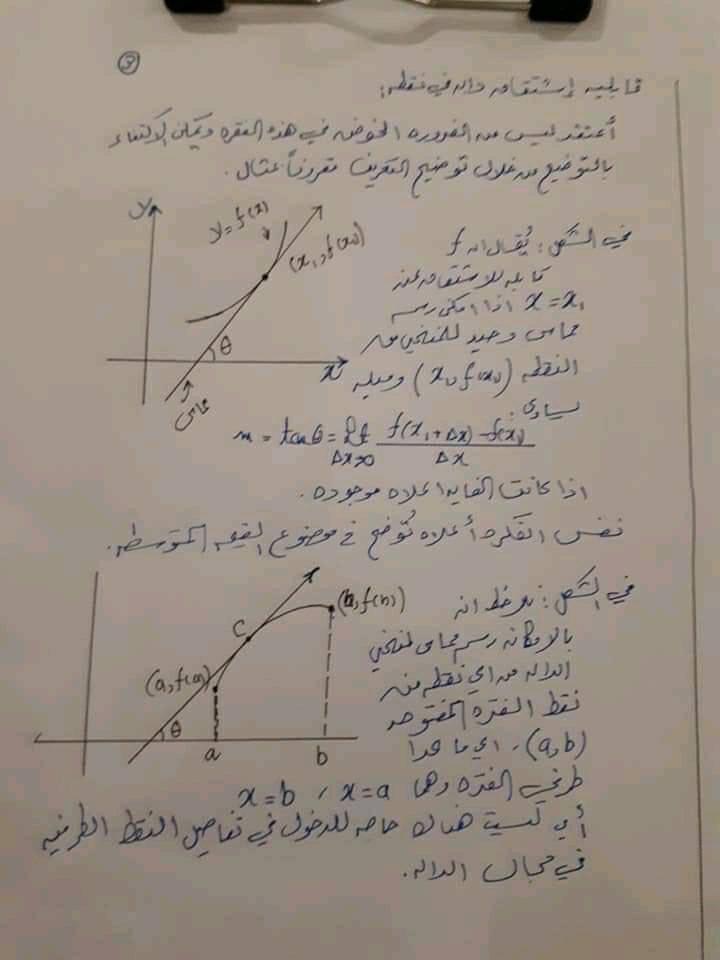 ③
قابلية إشتقاق داله في نقطه:
أعتقد ليس من الضروره الخوض في هذه الفقره ويمكن الإكتفاء
بالتوضيح من خلال توضيح التعريف مقروناً بمثال.
y
y=f(x)
(x₁, f(x₁))
θ
x
مماس
في الشكل: يُقال ان f
قابله للاشتقاق عند
x = x₁ اذا امكن رسم
مماس وحيد للمنحني من
النقطه (x₁, f(x₁)) وميله
يساوي:
m = tanθ = Lt Δx→0 f(x₁+Δx) - f(x₁) / Δx
اذا كانت الغايه اعلاه موجوده.
نفس الفكره أعلاه تُوضح في موضوع القيمه المتوسطه.
(a, f(a))
C
(b, f(b))
θ
a
b
في الشكل: نلاحظ انه
بالامكان رسم مماس لمنحني
الداله من اي نقطه من
نقط الفتره المفتوحه
(a, b)، اي ما عدا
طرفي الفتره وهما x=a ، x=b
أي ليست هناك حاجه للدخول في تفاصيل النقط الطرفيه
في مجال الداله.